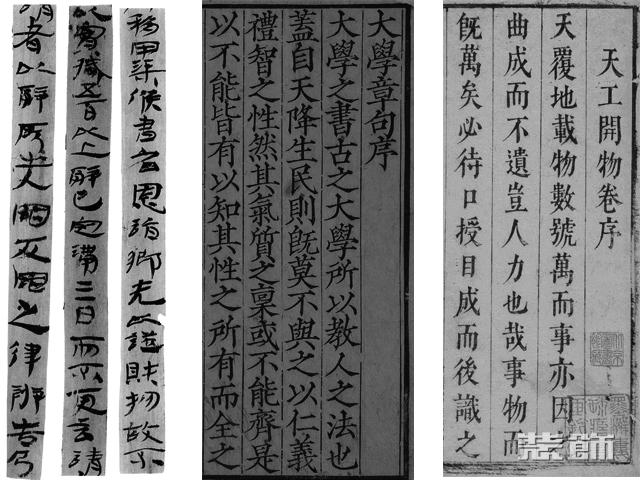 移甲渠候書召恩詣鄉先以證財物故不
以實臧五百以上辭已定滿三日而不更言請
者以辭所出入罪反罪之律辨告乃
大學章句序
大學之書古之大學所以教人之法也
蓋自天降生民則既莫不與之以仁義
禮智之性然其氣質之稟或不能齊是
以不能皆有以知其性之所有而全之
天工開物卷序
天覆地載物數號萬而事亦因
曲成而不遺豈人力也哉事物而
既萬矣必待口授目成而後識之
装飾